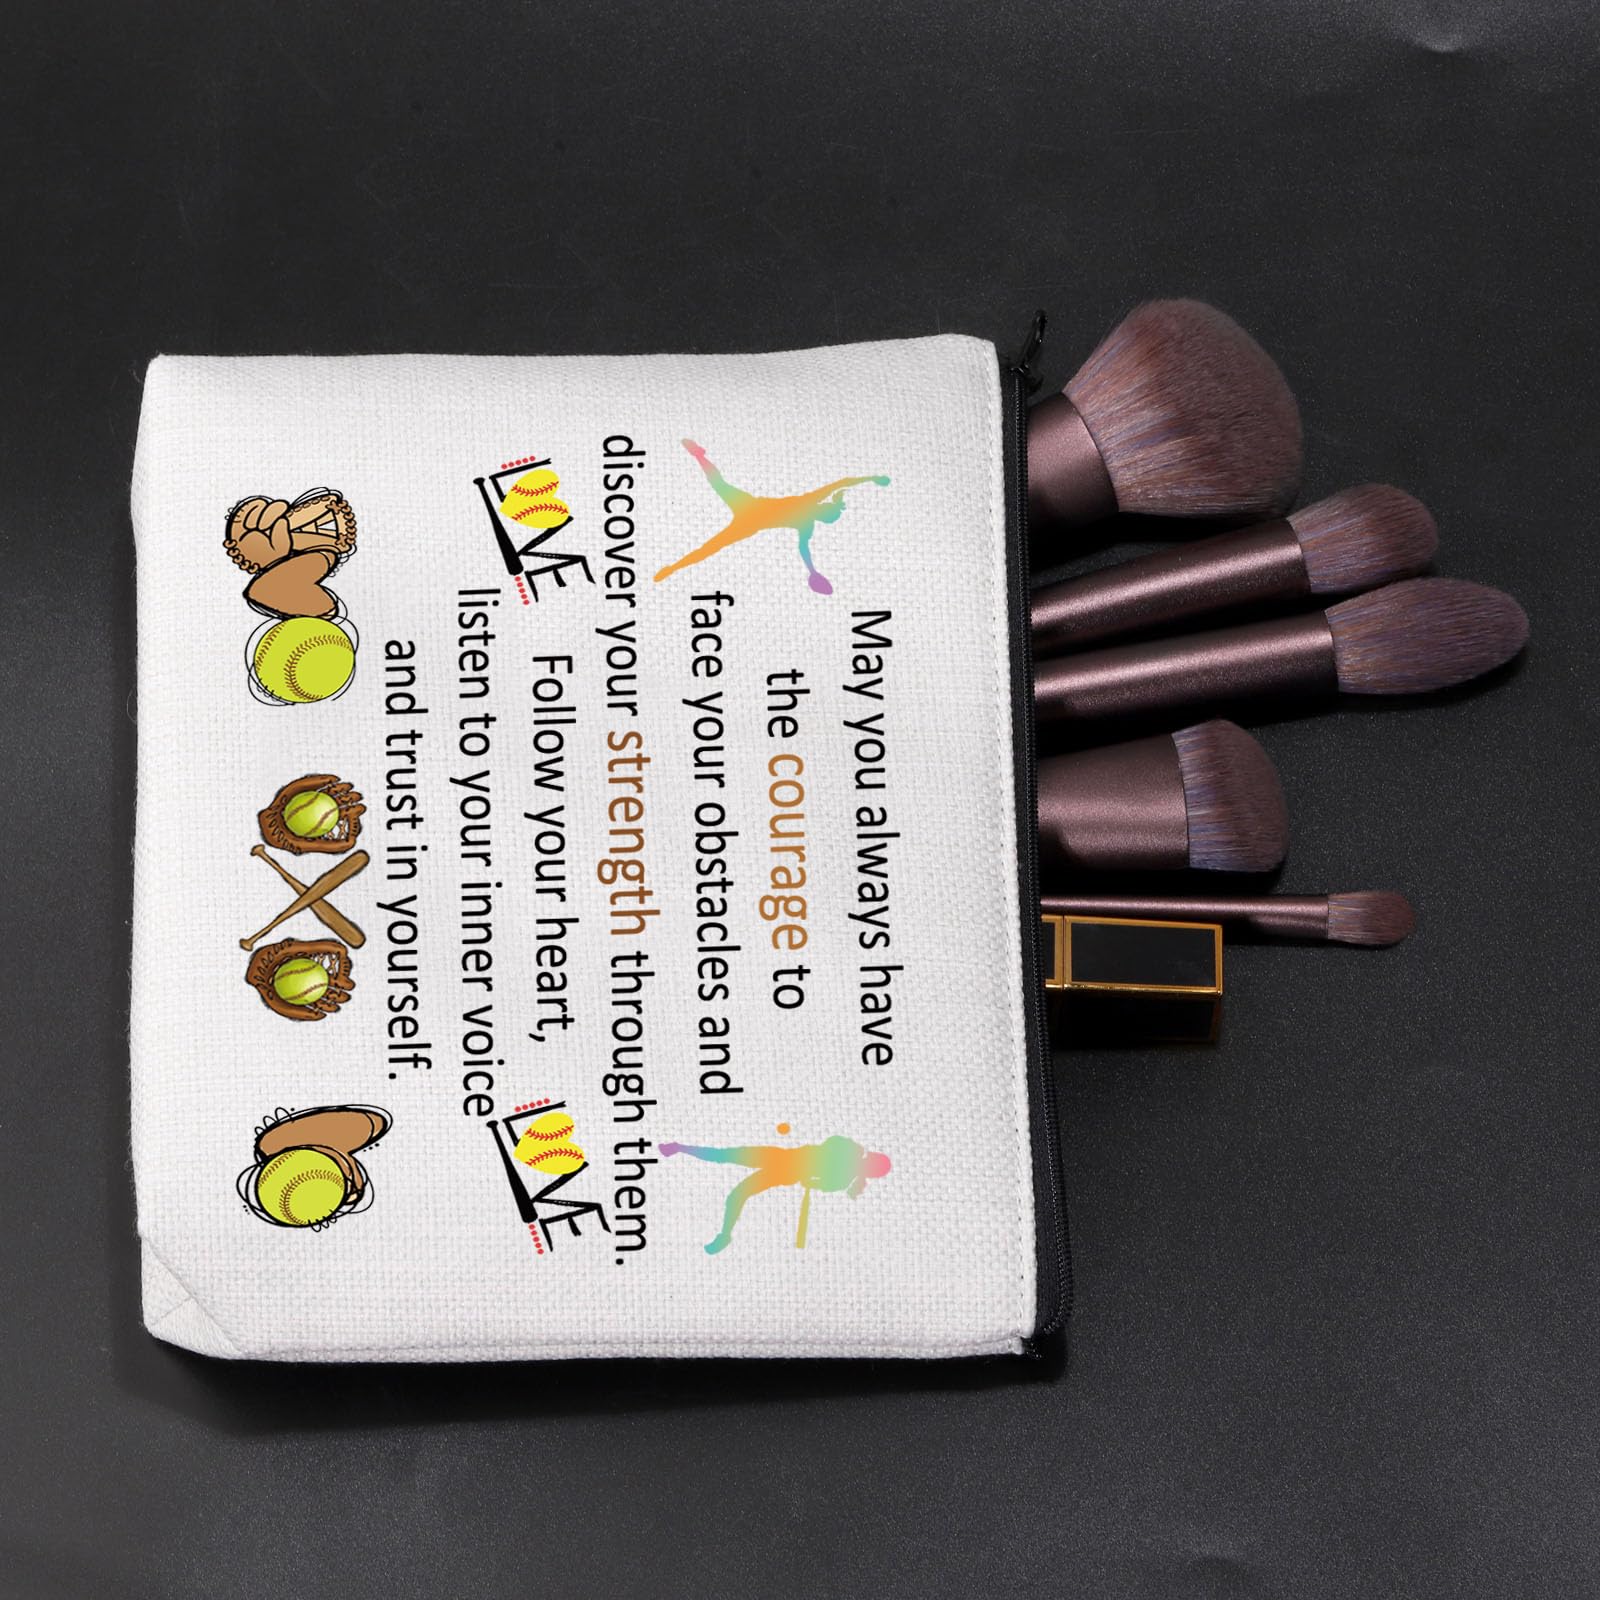 May you always have
the courage to
face your obstacles and
discover your strength through them.
LOVE
Follow your heart,
LOVE
listen to your inner voice
and trust in yourself.